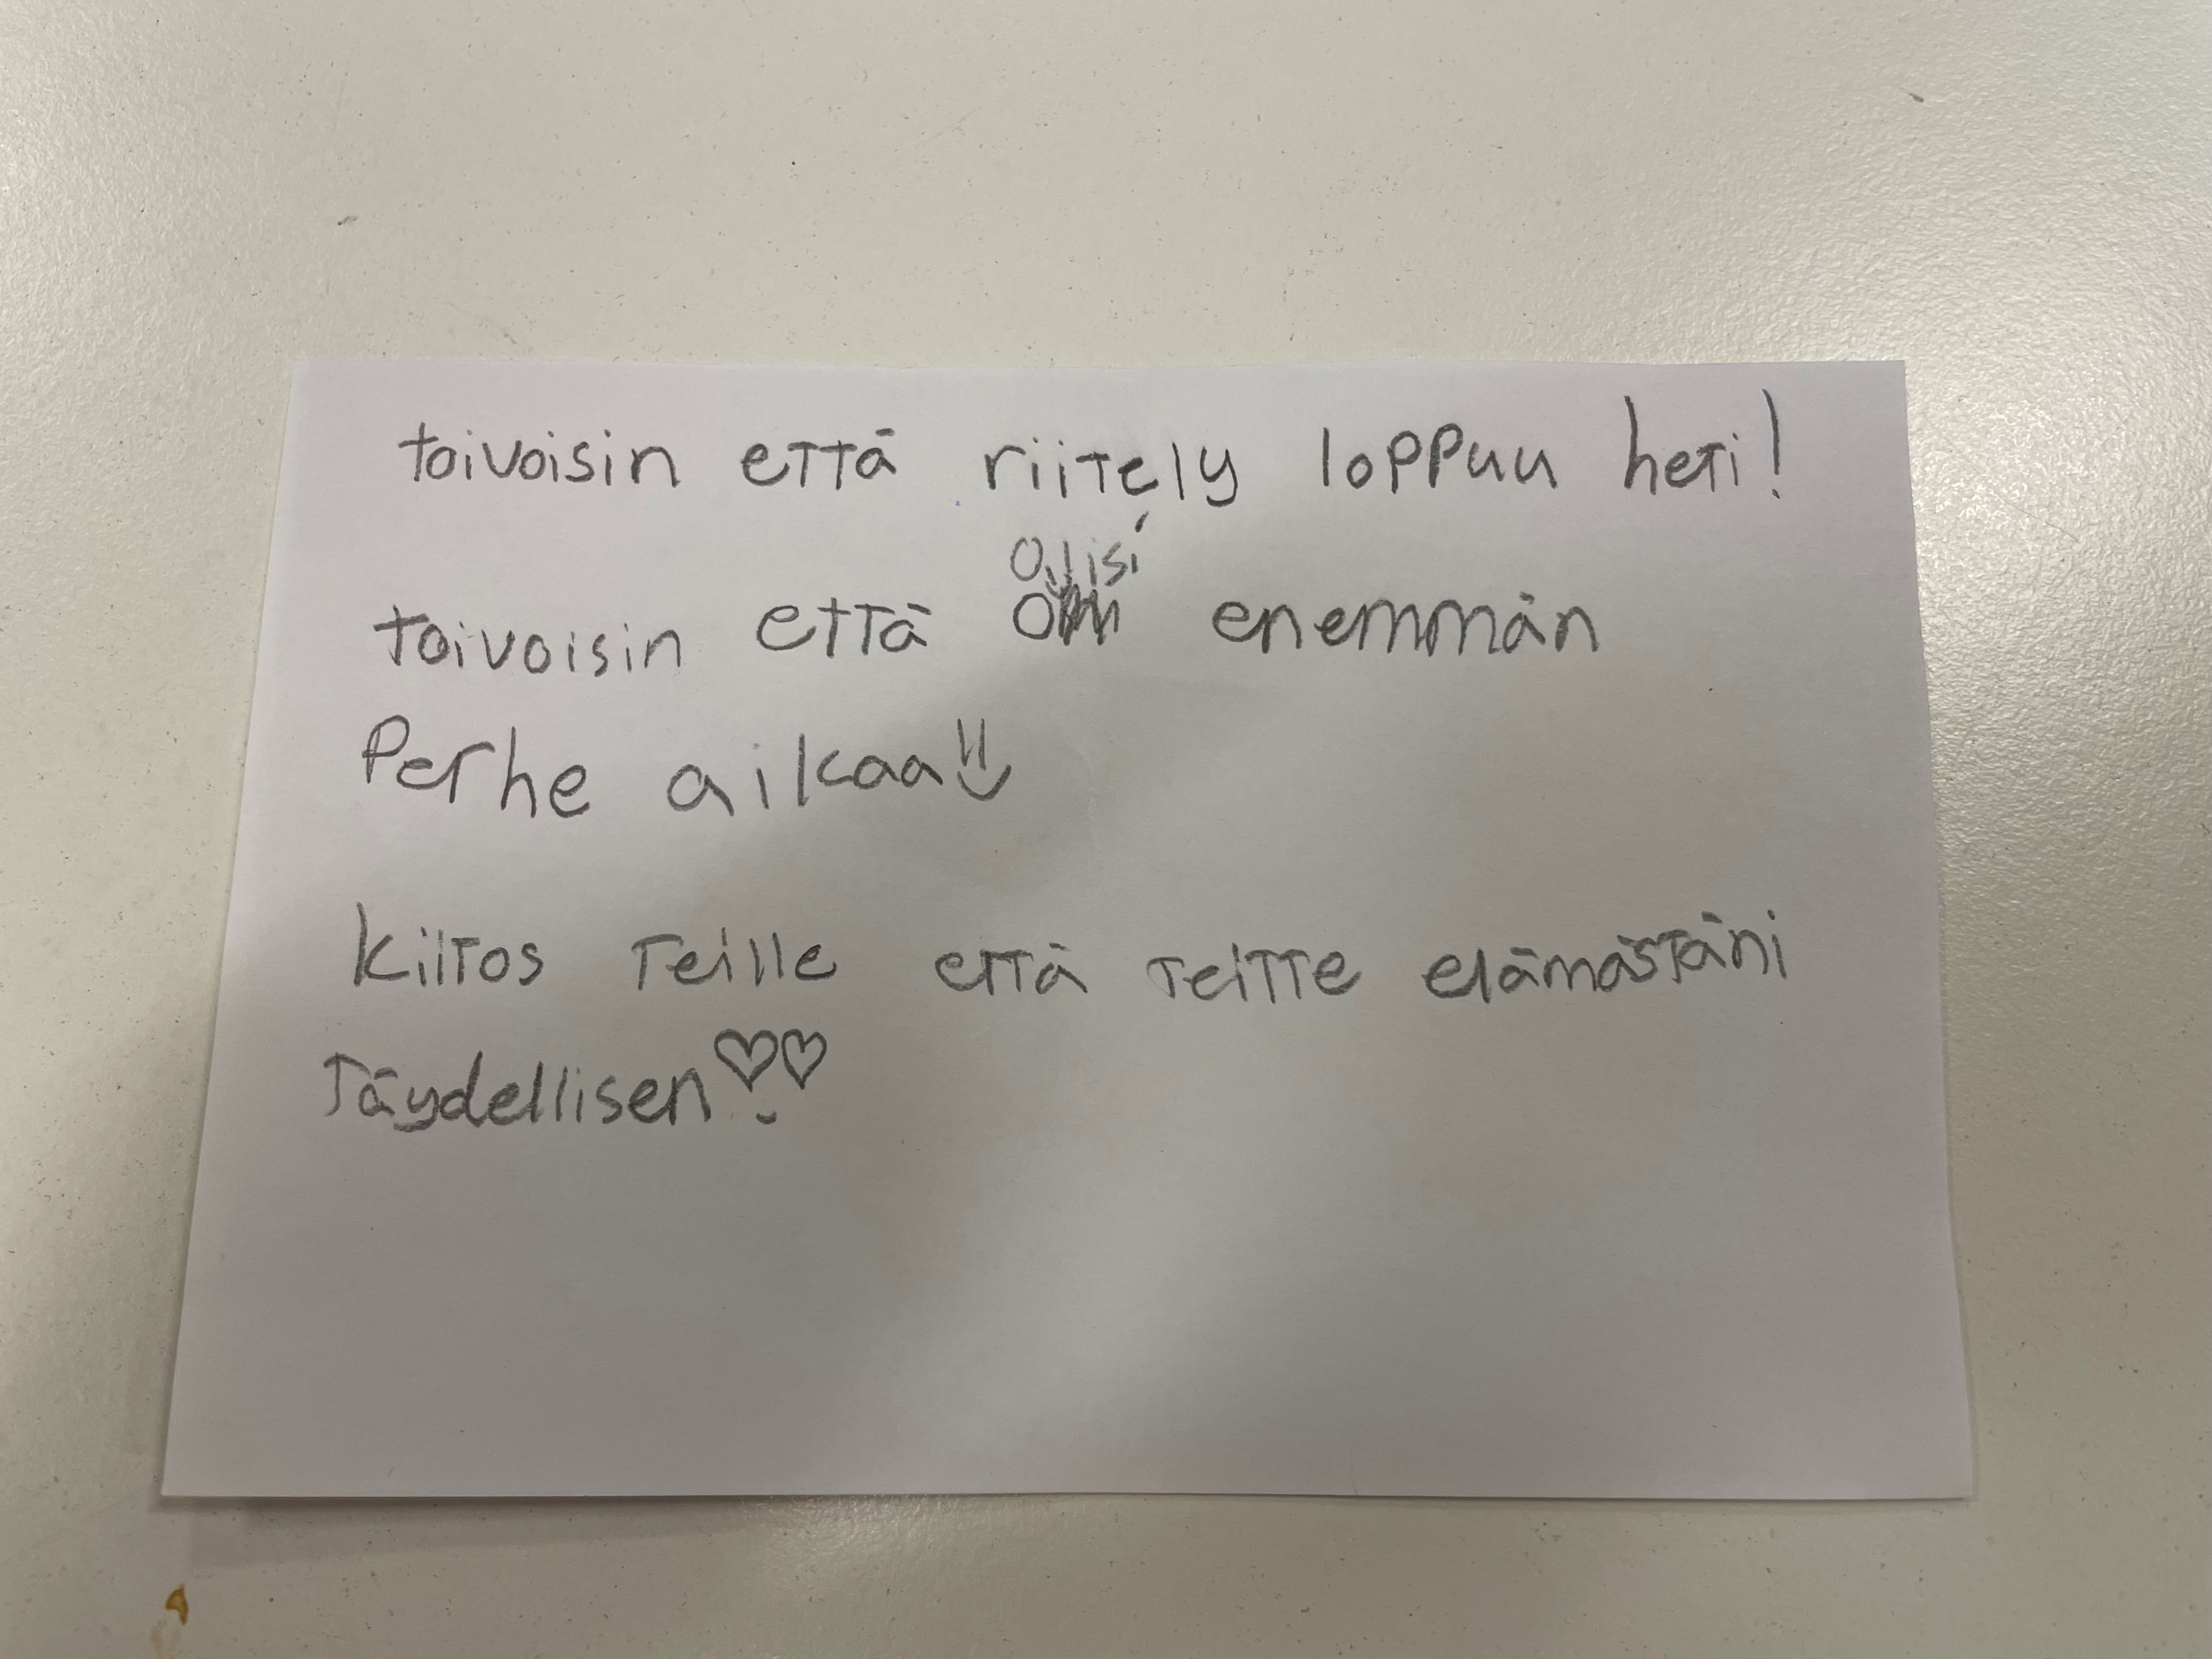 toivoisin että riitely loppuu heti!
olisi
toivoisin että enemmän
Perhe aikaa!!
kiitos teille että teitte elämästäni
Täydellisen♡♡